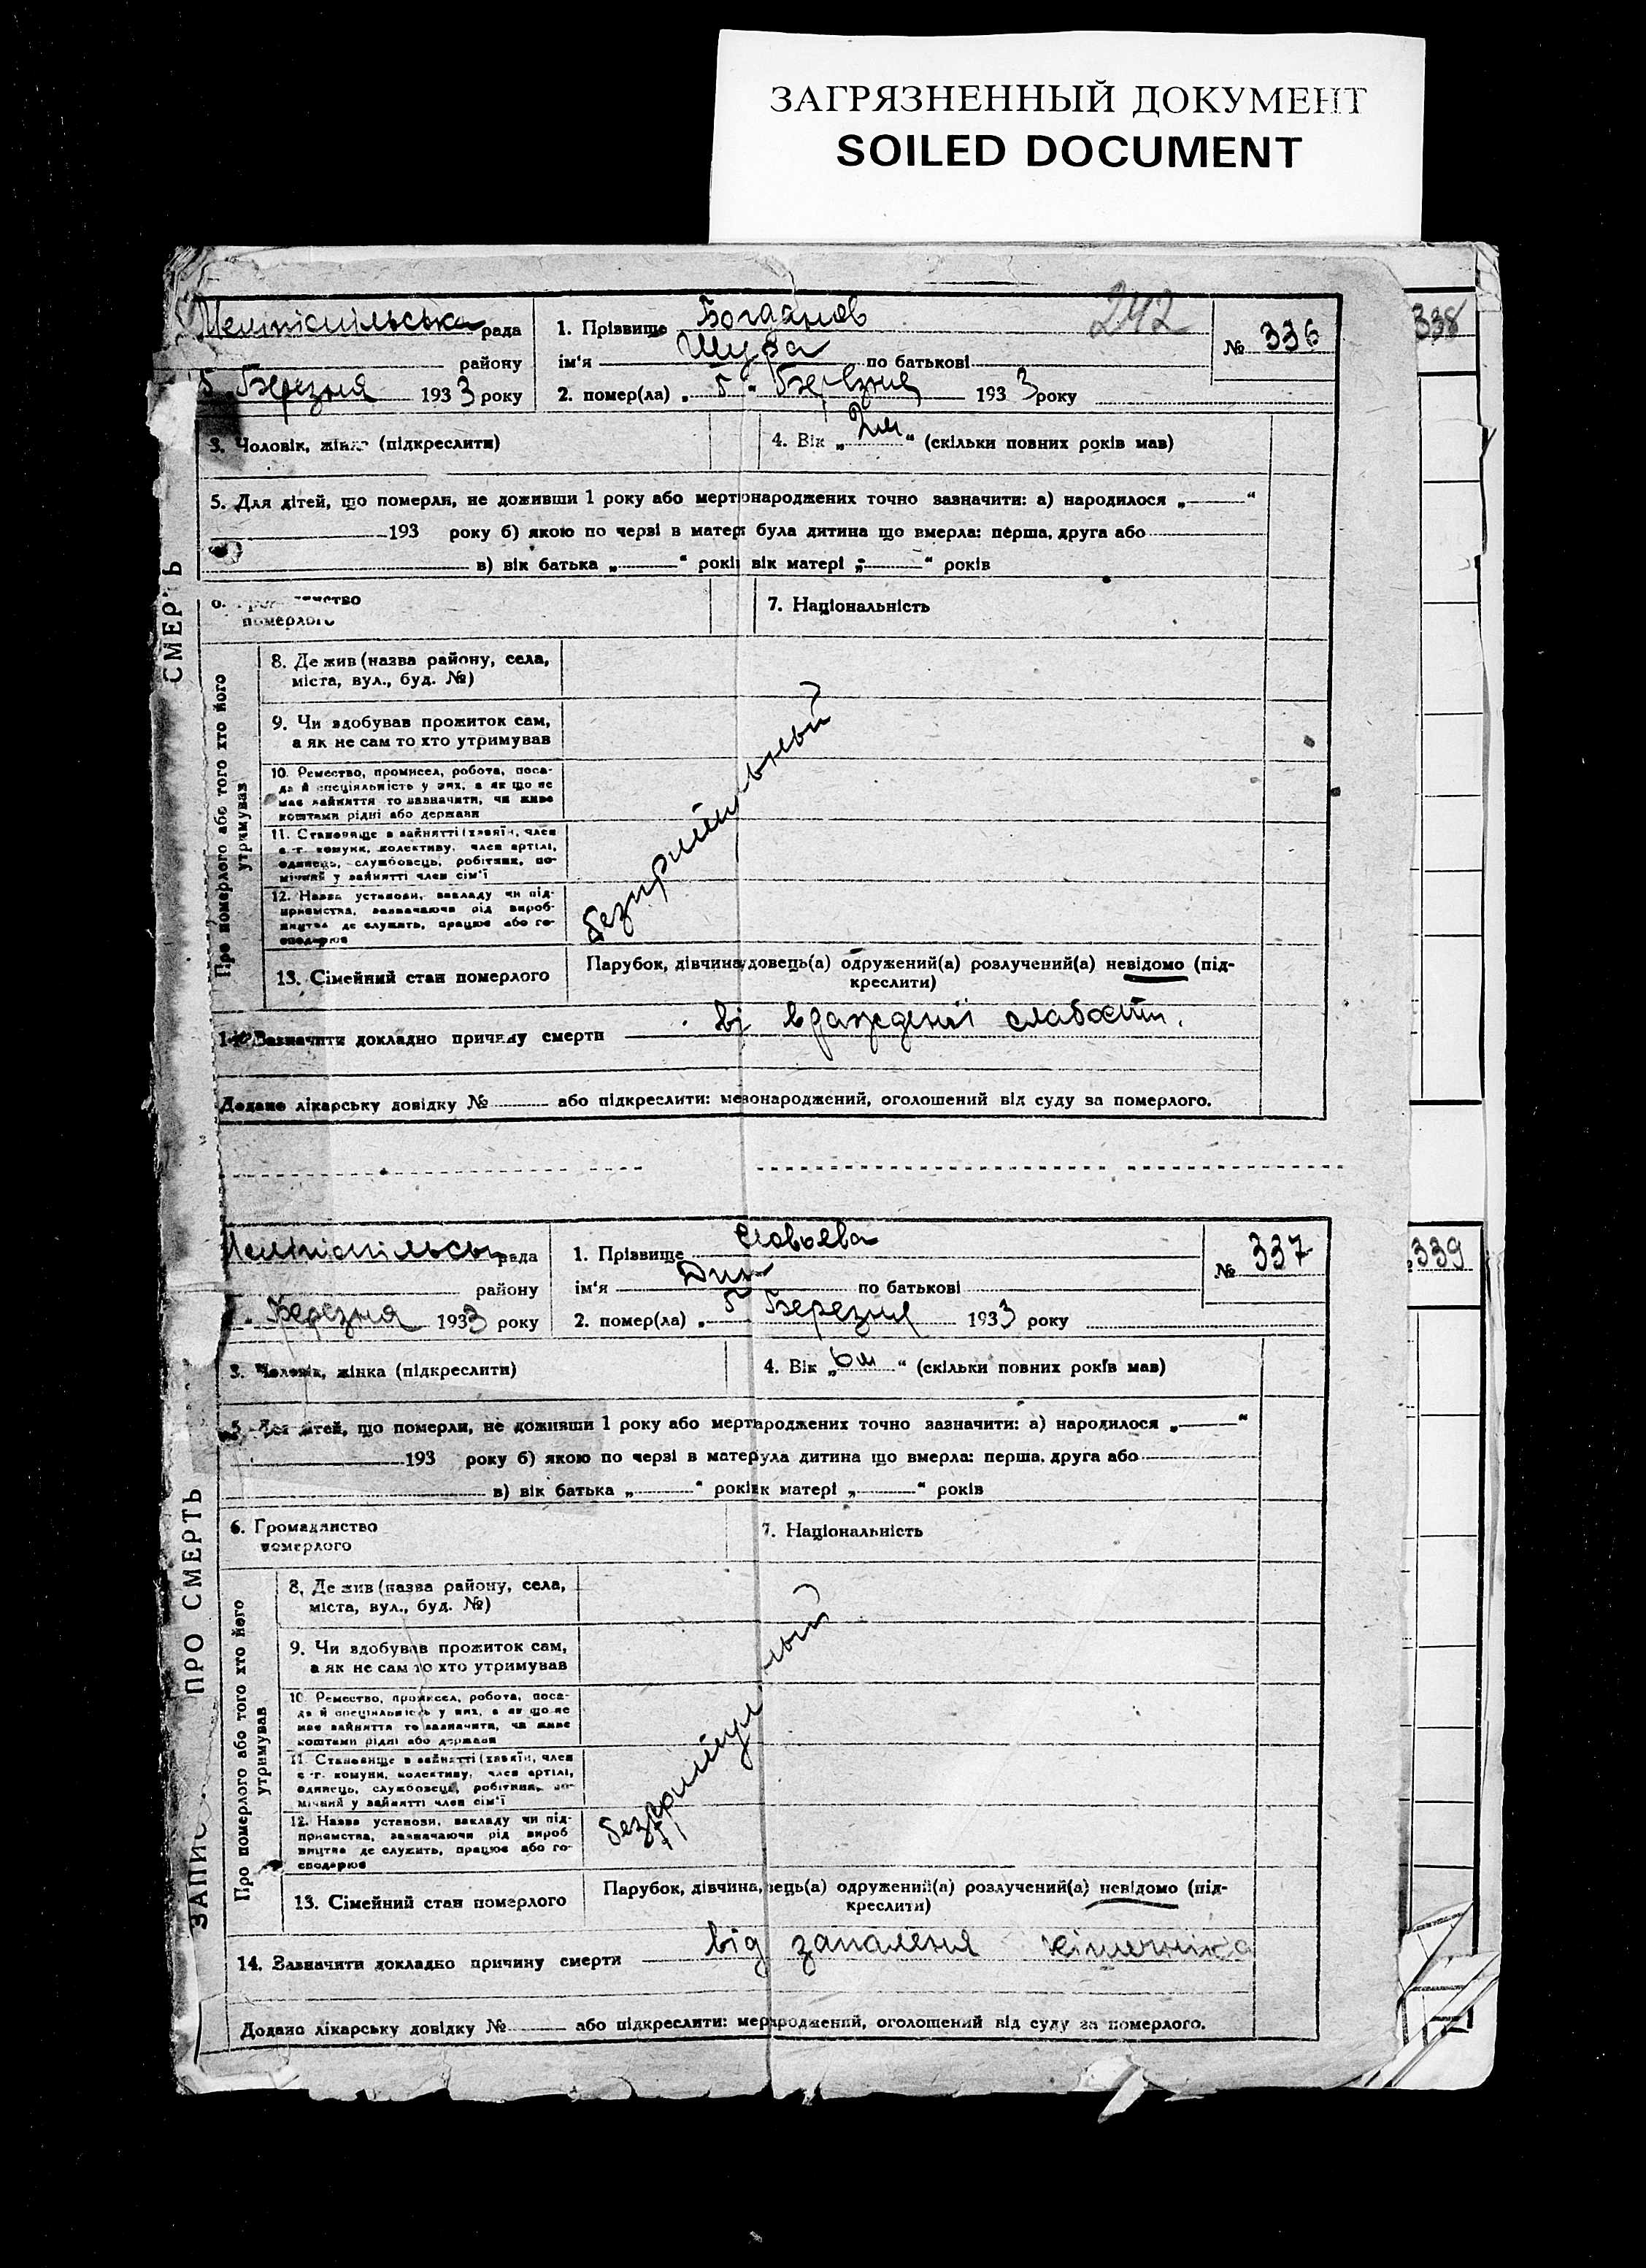 ЗАГРЯЗНЕННЫЙ ДОКУМЕНТ
SOILED DOCUMENT
242
338
Мелітопільська рада
району
5 Березня 1933 року
1. Прізвище Богданов
ім'я Шура по батькові
2. помер(ла) „5" Березня 1933 року
№ 336
3. Чоловік, жінка (підкреслити)
4. Вік „2м" (скільки повних років мав)
5. Для дітей, що померли, не доживши 1 року або мертвонароджених точно зазначити: а) народилося „ "
193 року б) якою по черзі в матері була дитина що вмерла: перша, друга або
в) вік батька „ " років вік матері „ " років
померлого
7. Національність
СМЕРТЬ
Про померлого або того хто його утримував
8. Де жив (назва району, села,
міста, вул., буд. №)
9. Чи здобував прожиток сам,
а як не сам то хто утримував
10. Ремество, промисел, робота, поса-
да й спеціяльність у них, а як що не
має зайняття то зазначити, чи живе
коштами рідні або держави
11. Становище в зайнятті (хазяїн, член
с.-г. комуни, колективу, член артілі,
одинець, службовець, робітник, по-
мічний у зайнятті член сім'ї
12. Назва установи, закладу чи під-
приємства, зазначаючи рід вироб-
ництва де служить, працює або го-
сподарює
13. Сімейний стан померлого
Парубок, дівчина, удовець(а) одружений(а) розлучений(а) невідомо (під-
креслити)
14. Зазначити докладно причину смерти
Додано лікарську довідку № або підкреслити: мертвонароджений, оголошений від суду за померлого.
339
Мелітопільськ рада
району
Березня 1933 року
1. Прізвище
ім'я
по батькові
2. помер(ла) „5 Березня 1933 року
№ 337
3. Чоловік, жінка (підкреслити)
4. Вік „6м" (скільки повних років мав)
5. Для дітей, що померли, не доживши 1 року або мертвонароджених точно зазначити: а) народилося „ "
193 року б) якою по черзі в матері була дитина що вмерла: перша, друга або
в) вік батька „ " років вік матері „ " років
6. Громадянство
померлого
7. Національність
ЗАПИС ПРО СМЕРТЬ
Про померлого або того хто його утримував
8. Де жив (назва району, села,
міста, вул., буд. №)
9. Чи здобував прожиток сам,
а як не сам то хто утримував
10. Ремество, промисел, робота, поса-
да й спеціяльність у них, а як що не
має зайняття то зазначити, чи живе
коштами рідні або держави
11. Становище в зайнятті (хазяїн, член
с.-г. комуни, колективу, член артілі,
одинець, службовець, робітник, по-
мічний у зайнятті член сім'ї
12. Назва установи, закладу чи під-
приємства, зазначаючи рід вироб
ництва де служить, працює або го-
сподарює
13. Сімейний стан померлого
Парубок, дівчина, удовець(а) одружений(а) розлучений(а) невідомо (під-
креслити)
14. Зазначити докладно причину смерти від запаленя кішечніка
Додано лікарську довідку № або підкреслити: мертвонароджений, оголошений від суду за померлого.